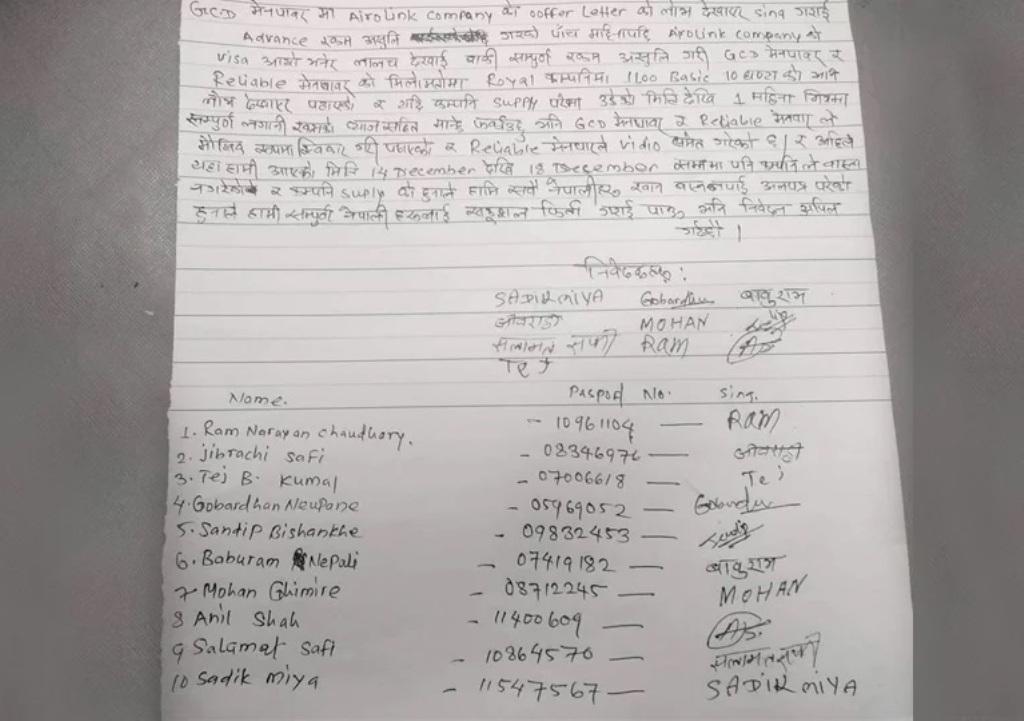 GCD मेनपावर मा Airolink company को ooffer Letter को लोभ देखाएर sing गराई
Advance रकम असुलि गरेको पाँच महिनापछि Airolink company को
visa आयो भनेर लालच देखाई बाकी सम्पुर्ण रकम असुलि गरी GCD मेनपावर र
Reliable मेनपावर को मिलेमतोमा Royal कम्पनिमा 1100 Basic 10 घण्टा को
लोभ देखाएर पठाएको र यदि कम्पनि supply परेमा उडेको मिति देखि 1 महिना भित्रमा
सम्पुर्ण लगानी रकमको व्याज सहित भनि GCD मेनपावर र Reliable मेनपावर ले
मौखिक रुपमा स्विकार गरी पठाएको र Reliable मेनपावरले vidio समेत गरेको छ । र अहिले
यहा हामी आएको मिति 14 December देखि 18 December सम्ममा पनि कम्पनि ले वास्ता
नगरेको र कम्पनि supply को हुनाले हामि सबै नेपालीहरु खान अलपत्र परेको
हुनाले हामी सम्पुर्ण नेपाली हरुलाई सकुशल फिर्ता गराई पाऊ भनि निवेदन अपिल
गर्दछौ ।
निवेदकहरू :
SADIK MIYA Gobardhan बाबुराम
जीबराछी MOHAN
सलामत सफी RAM
Tej
Name. Paspod No. Sing.
1. Ram Narayan chaudhory. - 10961104 — RAM
2. jibrachi safi - 08346976 — जीबराछी
3. Tej B. Kumal - 07006618 — Tej
4. Gobardhan Neupane - 05969052 — Gobardhan
5. Sandip Bishankhe - 09832453 — Sandip
6. Baburam Nepali - 07419182 — बाबुराम
7 Mohan Ghimire - 08712245 — MOHAN
8 Anil Shah - 11400609 — AS.
9 Salamat safi - 10864570 — सलामत सफी
10 Sadik miya - 11547567 — SADIK MIYA